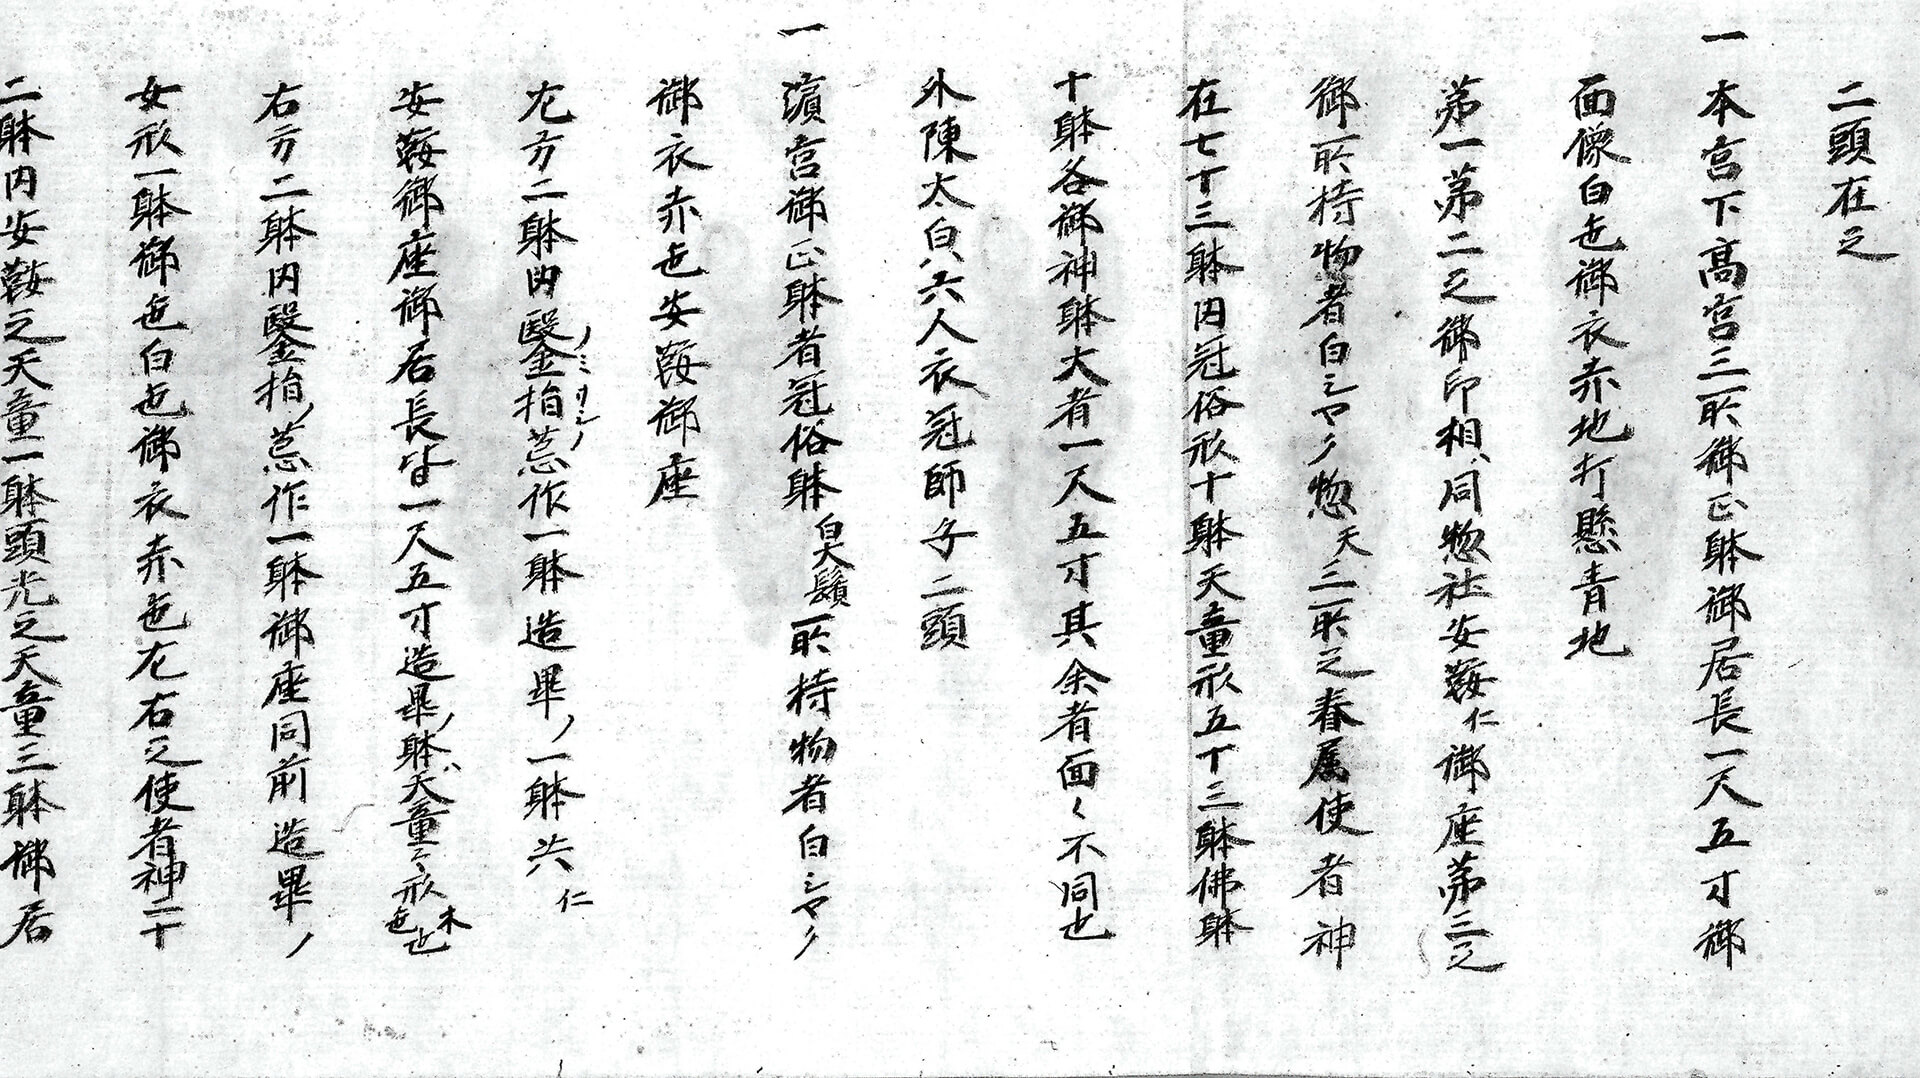 二頭在之
一本宮下高宮三所御正躰御居長一尺五寸御
面像白色御衣赤地打懸青地
苐一苐二之御印相、同惣社安鞍仁御座苐三之
御所持物者白シヤク惣天三所之眷属使者神
在七十三躰内冠俗形十躰天童形五十三躰佛躰
十躰各御神躰大者一尺五寸其余者面々不同也
外陳太白八六人衣冠師子二頭
一濵宮御正躰者冠俗躰白大鬚所持物者白シヤク
御衣赤色安鞍御座
左方二躰内鑿ノミ指サシノ荒作一躰造畢ノ一躰共仁
安鞍御座御居長皆一尺五寸造畢ノ躰ハ天童之形木色也
右方二躰内鑿指ノ荒作一躰御座同前造畢ノ
女形一躰御色白也御衣赤色左右之使者神二十
二躰内安鞍之天童一躰頭光之天童三躰御居